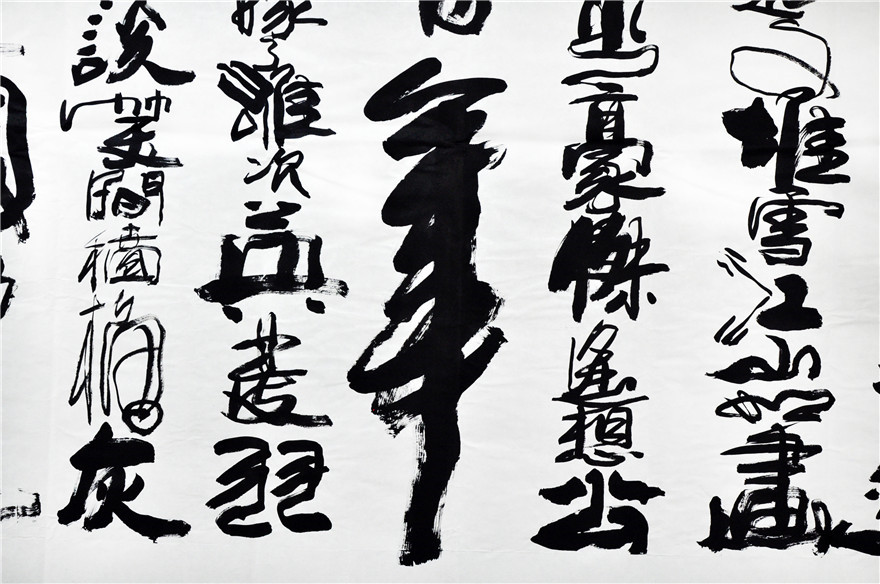 堆雪江山如畫
豪傑遙想公
年
嫁了雄姿英發羽
談笑間檣櫓灰